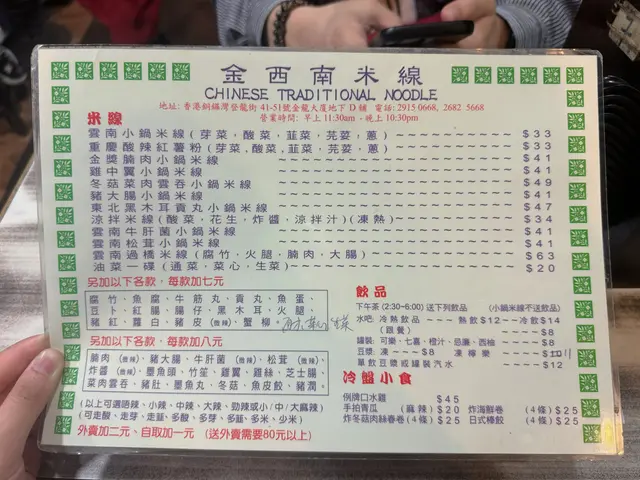 金西南米線
CHINESE TRADITIONAL NOODLE
地址: 香港銅鑼灣登龍街 41-51號金龍大廈地下 D 舖 電話: 2915 0668, 2682 5668
營業時間: 早上 11:30am - 晚上 10:30pm
米線
雲南小鍋米線 (芽菜，酸菜，韮菜，芫荽，蔥) $33
重慶酸辣紅薯粉 (芽菜，酸菜，韮菜，芫荽，蔥) $33
金獎腩肉小鍋米線 $41
雞中翼小鍋米線 $41
冬菇菜肉雲吞小鍋米線 $49
豬大腸小鍋米線 $41
東北黑木耳貢丸小鍋米線 $47
涼拌米線 (酸菜，花生，炸醬，涼拌汁) (凍熱) $34
雲南牛肝菌小鍋米線 $41
雲南松茸小鍋米線 $41
雲南過橋米線 (腐竹，火腿，腩肉，大腸) $63
油菜一碟 (通菜，菜心，生菜) $20
另加以下各款，每款加七元
腐竹、魚腐、牛筋丸、貢丸、魚蛋、
豆卜、紅腸、腸仔、黑木耳、火腿、
豬紅、蘿白、豬皮 (微辣)、蟹柳、 生菜
另加以下各款，每款加八元
腩肉 (微辣)、豬大腸、牛肝菌 (微辣)、松茸 (微辣)、
炸醬 (微辣)、墨魚頭、竹笙、雞翼、雞絲、芝士腸、
菜肉雲吞、豬肚、墨魚丸、冬菇、魚皮餃、豬潤。
(以上可選唔辣、小辣、中辣、大辣、勁辣或小/中/大麻辣)
(可走酸、走芽、走韮、多酸、多芽、多韮、多米、少米)
外賣加二元、自取加一元 (送外賣需要80元以上)
飲品
下午茶 (2:30-6:00) 送下列飲品 (小鍋米線不送飲品)
水吧: 冷熱飲品 熱飲 $12 冷飲 $14
(跟餐) $8
罐裝: 可樂，七喜，橙汁，忌廉，西柚 $8
豆漿: 凍 $8 凍檸樂 $11
單飲豆漿或罐裝汽水 $12
冷盤小食
例牌口水雞 $45
手拍青瓜 (麻辣) $20 炸海鮮卷 (4條) $25
炸冬菇肉絲春卷 (4條) $25 日式棒餃 (4條) $25